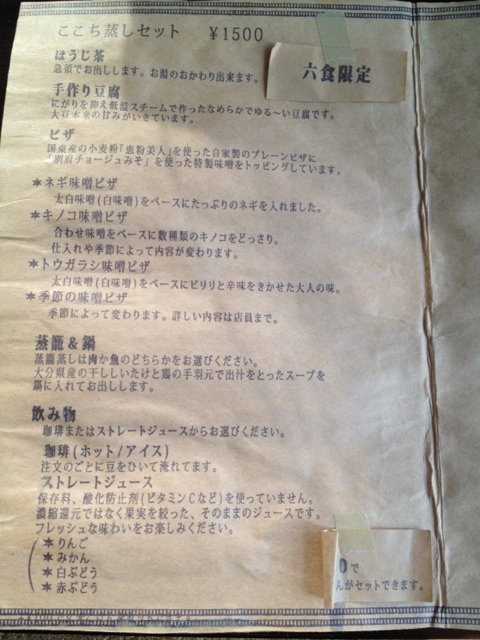 ここち蒸しセット　¥1500
六食限定
ほうじ茶
急須でお出しします。お湯のおかわり出来ます。
手作り豆腐
にがりを抑え低温スチームで作ったなめらかでゆる〜い豆腐です。
大豆本来の甘みがいきています。
ピザ
国東産の小麦粉「恵粉美人」を使った自家製のプレーンピザに
「別府チョージュみそ」を使った特製味噌をトッピングしています。
＊ネギ味噌ピザ
太白味噌(白味噌)をベースにたっぷりのネギを入れました。
＊キノコ味噌ピザ
合わせ味噌をベースに数種類のキノコをどっさり。
仕入れや季節によって内容が変わります。
＊トウガラシ味噌ピザ
太白味噌(白味噌)をベースにピリリと辛味をきかせた大人の味。
＊季節の味噌ピザ
季節によって変わります。詳しい内容は店員まで。
蒸籠＆鍋
蒸籠蒸しは肉か魚のどちらかをお選びください。
大分県産の干ししいたけと鶏の手羽元で出汁をとったスープを
鍋に入れてお出しします。
飲み物
珈琲またはストレートジュースからお選びください。
珈琲(ホット/アイス)
注文のごとに豆をひいて淹れてます。
ストレートジュース
保存料、酸化防止剤(ビタミンCなど)を使っていません。
濃縮還元ではなく果実を絞った、そのままのジュースです。
フレッシュな味わいをお楽しみください。
＊りんご
＊みかん
＊白ぶどう
＊赤ぶどう
0で
んがセットできます。